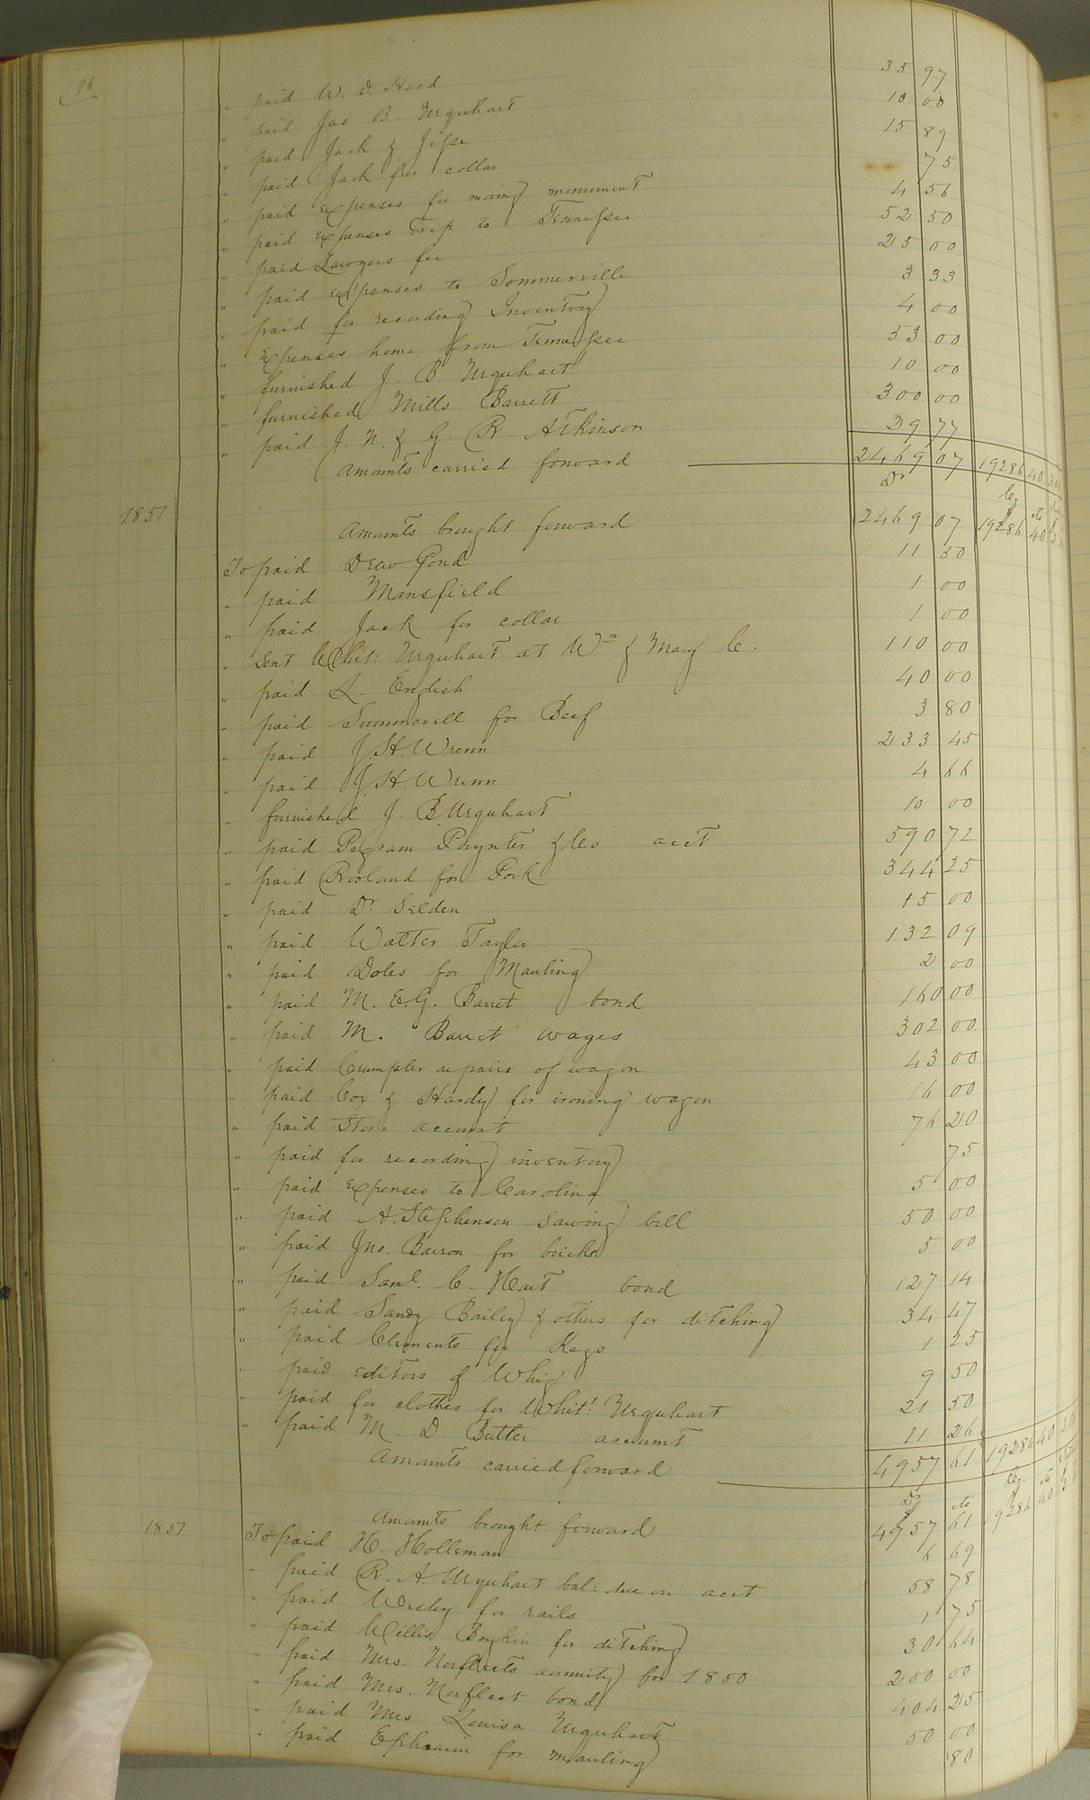 196
" paid W. D. Hood 35 97
" paid Jas B. Urquhart 10 00
" paid Jack & Jesse 15 89
" paid Jack for collar 75
" paid expenses for moving monument 4 56
" paid expenses trip to Tennessee 52 50
" paid Lawyers fee 25 00
" paid expenses to Sommerville 3 33
" paid for recording Inventory 4 00
" Expenses home from Tennessee 53 00
" furnished J. B. Urquhart 10 00
" furnished Mills Barrett 300 00
" paid J. N. & G. R. Atkinson 29 77
Amounts carried forward 2469 07 19286 40
Dr
1857
Amounts brought forward 2469 07 19286 40
To paid Drew Pond 11 50
" paid Mansfield 1 00
" paid Jack for collar 1 00
" Sent Whit: Urquhart at Wm & Mary C. 110 00
" paid L. English 40 00
" paid Summerell for Beef 3 80
" paid J. H. Wrenn 233 45
" paid J. H. Wrenn 4 66
" furnished J. B. Urquhart 10 00
" paid Pegram Paynter & Co acct 590 72
" paid Rowland for Pork 344 25
" paid Dr. Selden 15 00
" paid Walter Taylor 132 09
" paid Doles for Mauling 2 00
" paid M. E. G. Barret bond 160 00
" paid M. Barret wages 302 00
" paid Crumpler repairs of wagon 43 00
" paid Cox & Hardy for ironing wagon 16 00
" paid Store account 76 20
" paid for recording inventory 75
" paid expenses to Carolina 5 00
" paid A. Stephenson sawing bill 50 00
" paid Jno. Barron for bricks 5 00
" paid Saml. C. Hart bond 127 14
" paid Sandy Bailey & others for ditching 34 47
" paid Clements for Kegs 1 25
" paid editors of Whig 9 50
" paid for clothes for Whit! Urquhart 21 50
" paid M. D Butler account 11 26
Amounts carried forward 4957 61 19286 40
Dr cts
1857
Amounts brought forward 4957 61 19286 40
To paid H. Holleman 6 69
" paid R. A. Urquhart bal: due on acct 58 78
" paid Wesley for rails 1 75
" paid Willis Boykin for ditching 30 64
" paid Mrs. Norfleets annuity for 1850 200 00
" paid Mrs. Norfleet bond 404 25
" paid Mrs Louisa Urquhart 50 00
" paid Ephraim for mauling 80